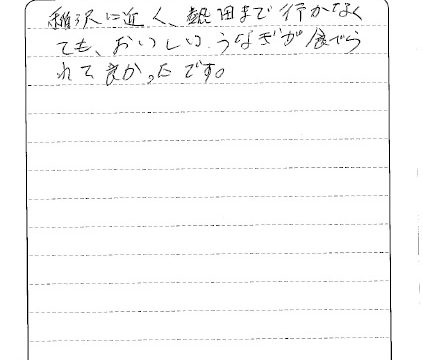 稲沢に近く、熱田まで行かなく
ても、おいしいうなぎが食べら
れて良かったです。